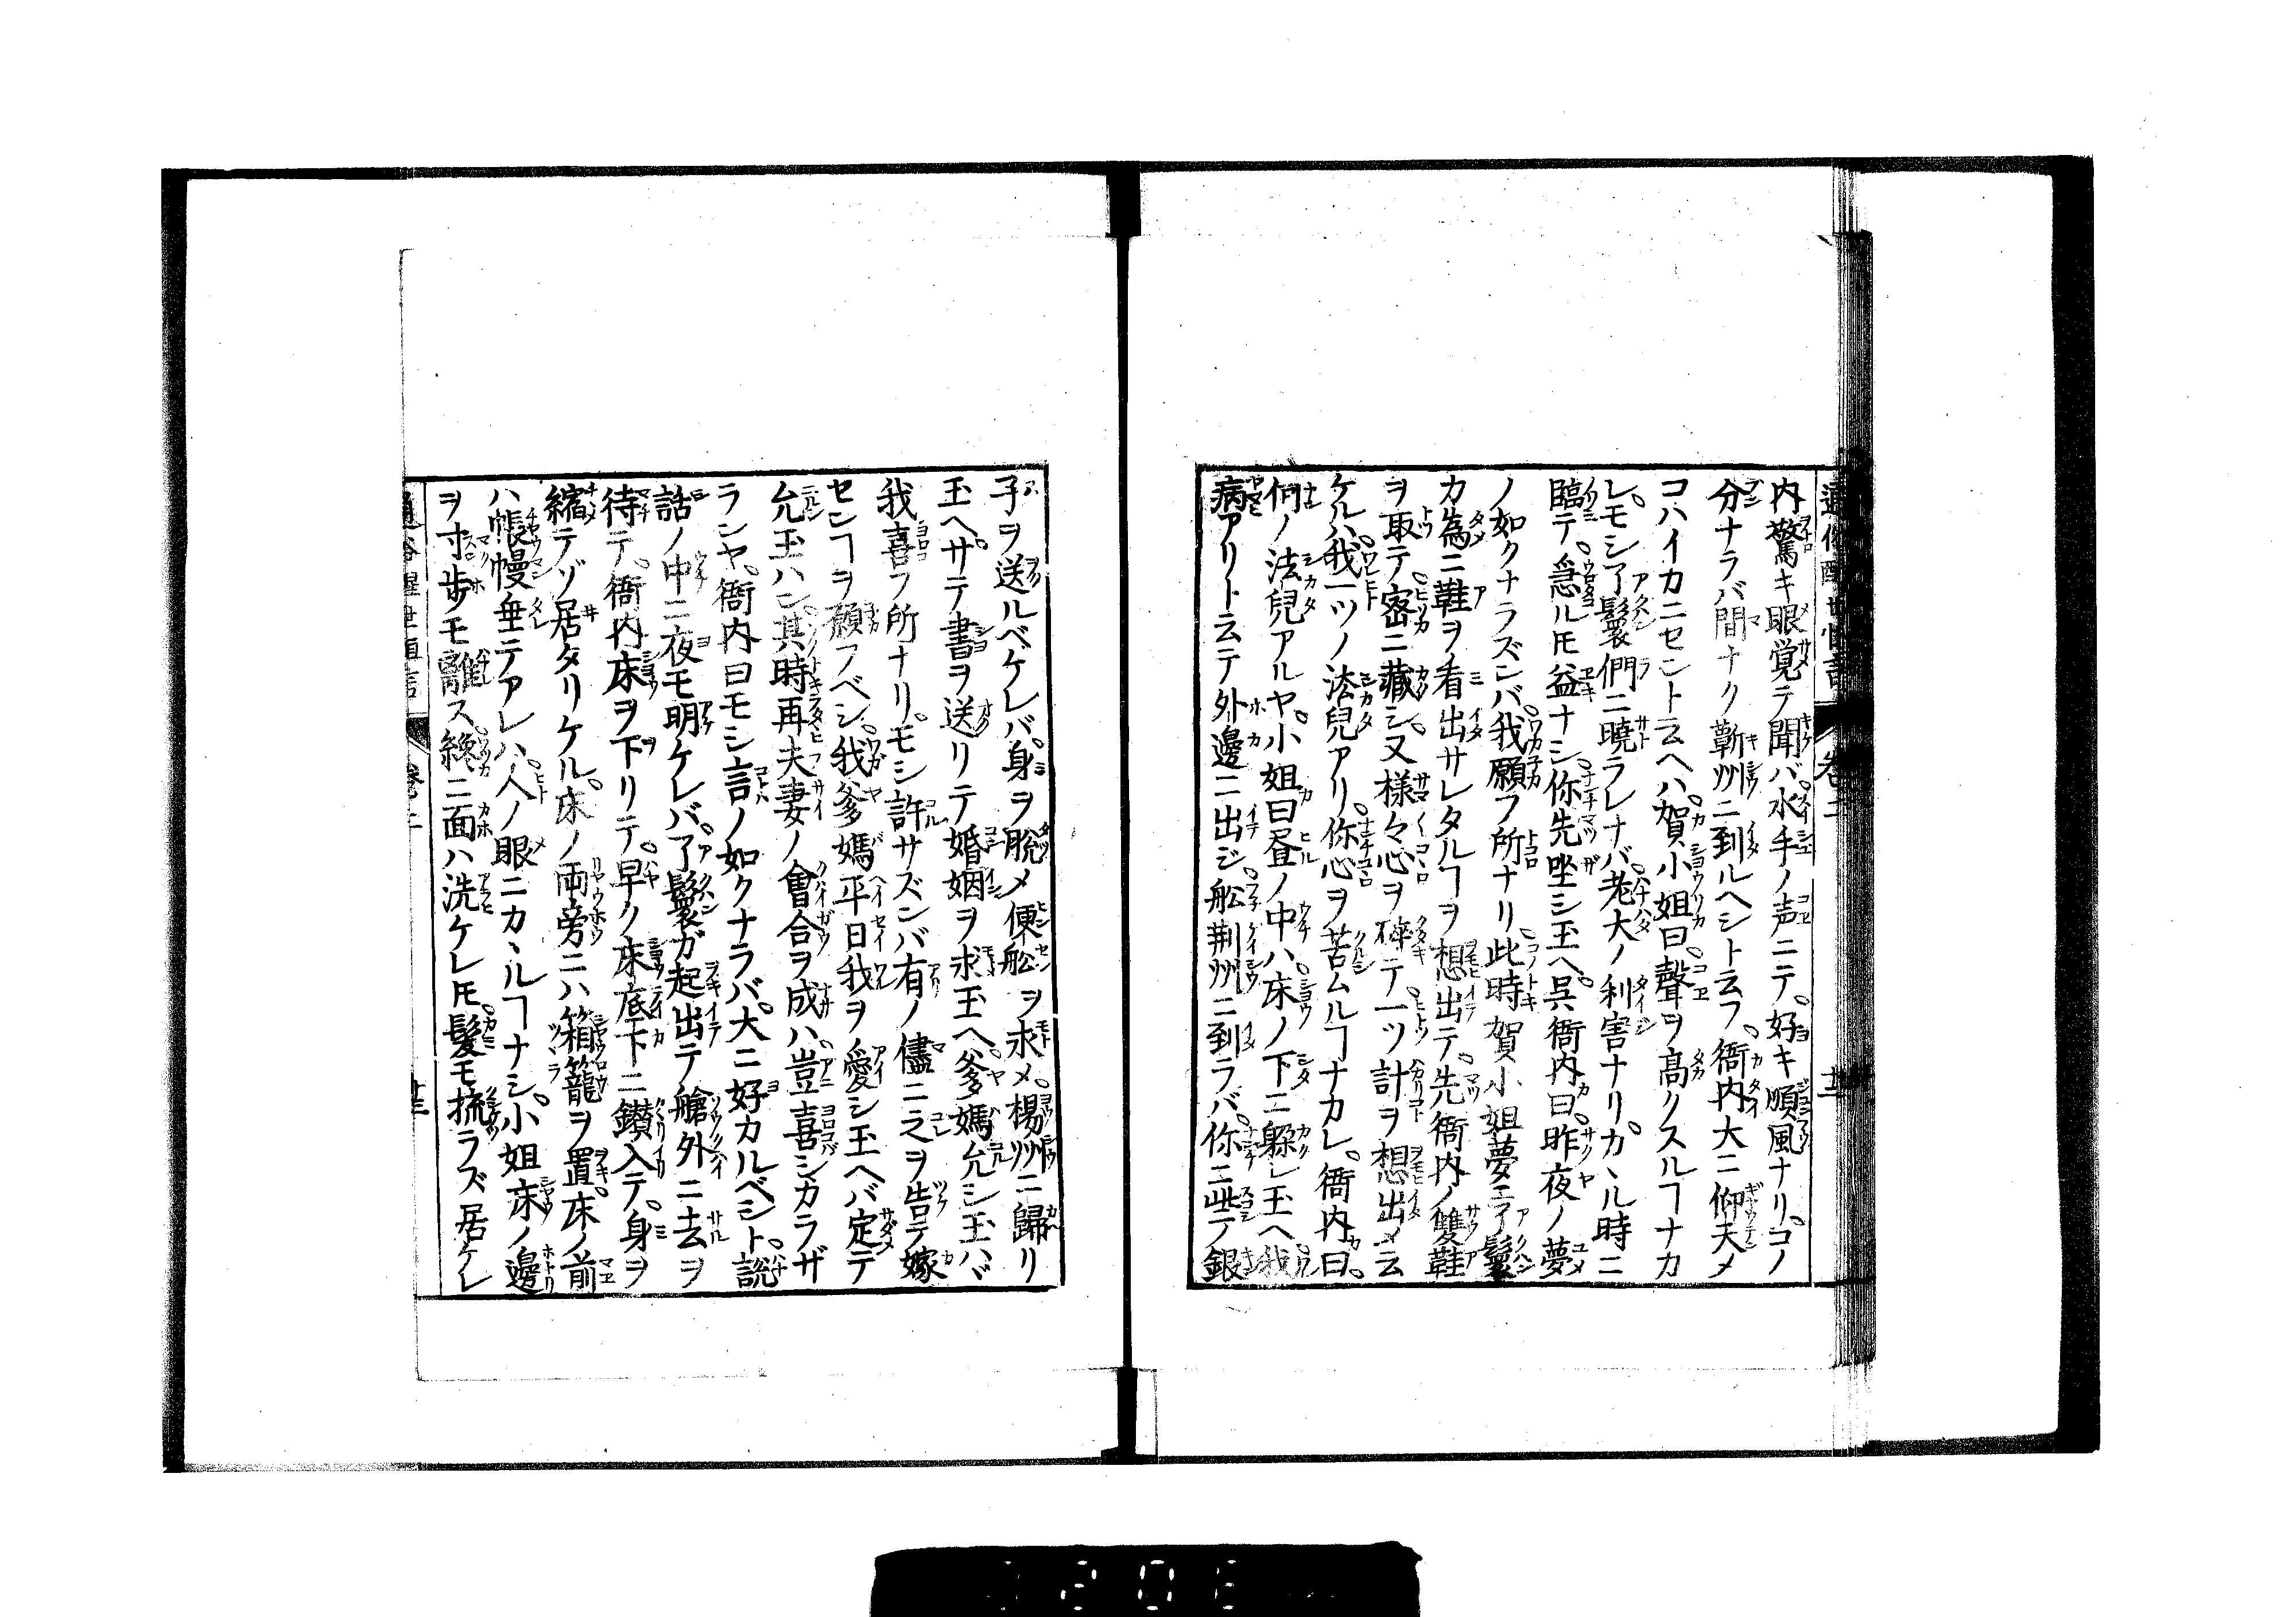 内驚キ眼覚テ聞バ水手ノ声ニテ。好キ順風ナリ。コノ
分ナラバ間ナク蘄州ニ到ルヘシト云フ。衙内大ニ仰天メ
コハイカニセントヲヘハ。賀小姐曰。聲ヲ高クスルヿナカ
レ。モシ了鬟們ニ曉ラレナバ。老大ノ利害ナリ。カヽル時ニ
臨テ。急ルモ益ナシ。你先坐シ玉ヘ。呉衙内曰。昨夜ノ夢
ノ如クナラズンバ。我願フ所ナリ。此時賀小姐夢ニ了鬟
カ為ニ鞋ヲ看出サレタルヿヲ想出テ。先衙内ノ雙鞋
ヲ取テ密ニ藏シ。又様々心ヲ碎テ。一ツ計ヲ想出メ云
ケルハ。我一ツノ法兒アリ。你心ヲ苦ムルヿナカレ。衙内曰。
何ノ法兒アルヤ。小姐曰昼ノ中ハ。床ノ下ニ躱レ玉ヘ。我
病アリト云テ外邊ニ出ジ。舩荆州ニ到ラバ。你ニ些ノ銀
子ヲ送ルベケレバ。身ヲ脱メ便舩ヲ求メ。楊州ニ歸リ
玉ヘ。サテ書ヲ送リテ婚姻ヲ求玉ヘ。爹媽允シ玉ハバ
我喜フ所ナリ。モシ許サズンバ有ノ儘ニ之ヲ告テ嫁
センヿヲ願フベシ。我爹媽平日我ヲ愛シ玉ヘバ定テ
允玉ハン。其時再夫妻ノ會合ヲ成ハ。豈喜シカラザ
ランヤ。衙内曰モシ言ノ如クナラバ。大ニ好カルベシト。説
話ノ中ニ夜モ明ケレバ。了鬟ガ起出テ艙外ニ去ヲ
待テ。衙内床ヲ下リテ。早ク床底下ニ鑚入テ。身ヲ
縮テゾ居タリケル。床ノ両旁ニハ箱籠ヲ置。床ノ前
ハ帳幔垂テアレハ。人ノ眼ニカヽルヿナシ。小姐床ノ邊
ヲ寸歩モ離ス。纔ニ面ハ洗ケレ𪜈。髮モ梳ラズ居ケレ